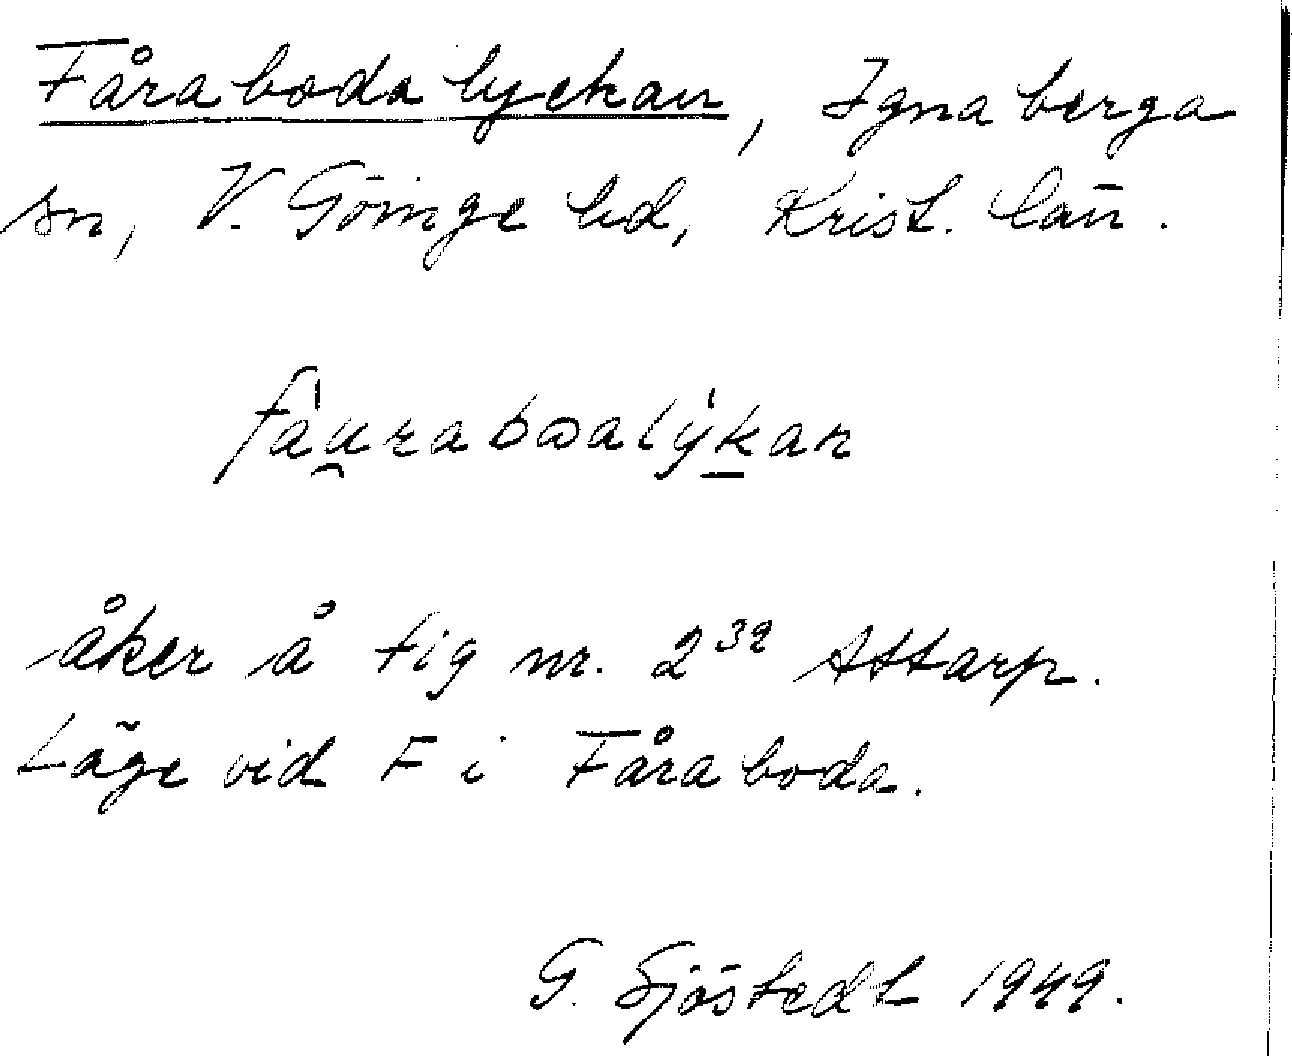 Fårabodalyckan, Ignaberga
sn, V. Göinge hd, Krist. län.
fàu̯rabωalýkan
åker å fig nr. 2³² Attarp.
Läge vid F i Fåraboda.
G. Sjöstedt 1949.